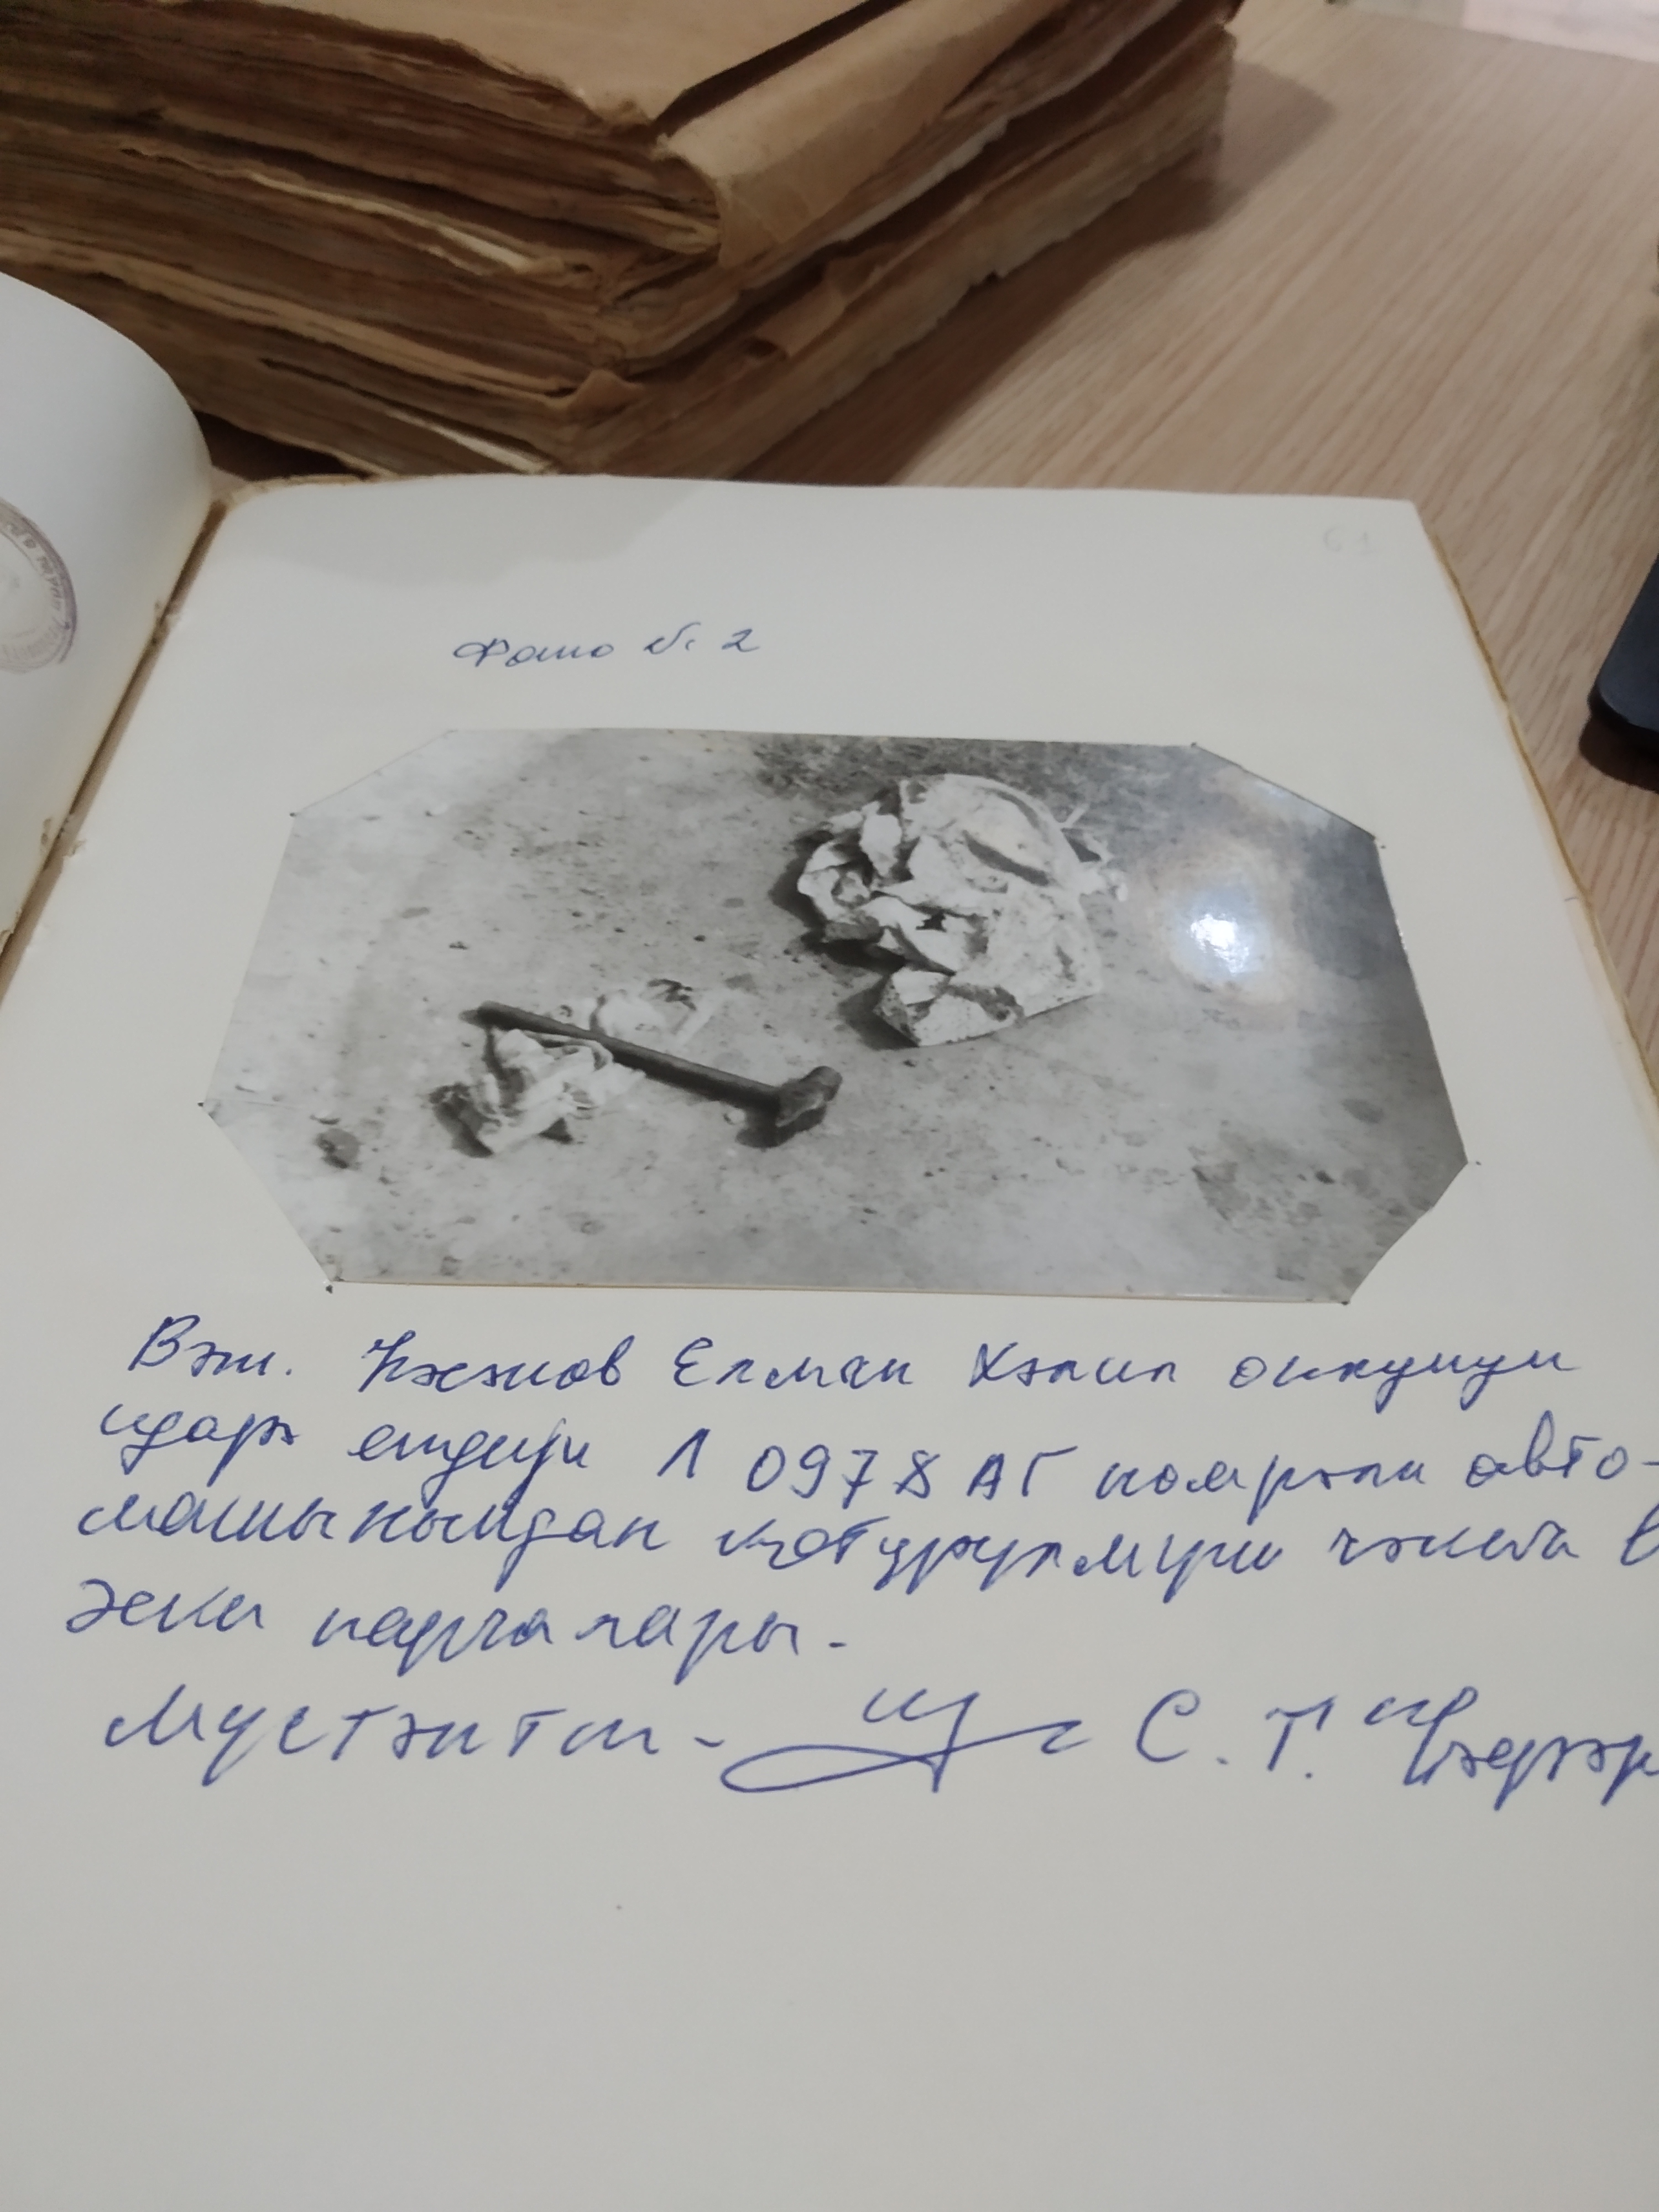 61
Фото № 2
Вэт. Елман Хәлил оғлунун
идарә етдији Л 0978 АГ нөмрәли авто-
машынындан көтүрүлмүш чәкич в
әски парчалары.
Мүстәнтиг- С. Т.